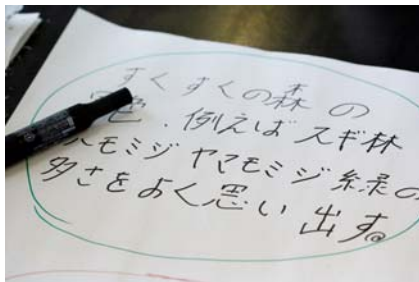 すくすくの森の
色、例えばスギ林
モミジ ヤマモミジ 緑の
多さをよく思い出す。